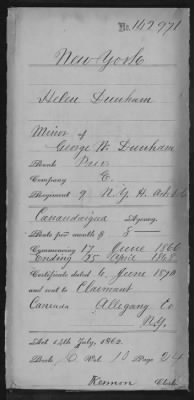 No. 142971
New York
Helen Dunham
Minor of
George W. Dunham
Rank Priv
Company E.
Regiment 9 N.Y. H. Art.
Canandaigua Agency.
Rate per month $ 8 —
Commencing 17 June 1866
Ending 25 April 1868
Certificate dated 6 June 1870
and sent to Claimant
Caneadea Allegany Co
N.Y.
Act 14th July, 1862.
Book C Vol. 10 Page 24
Clerk.